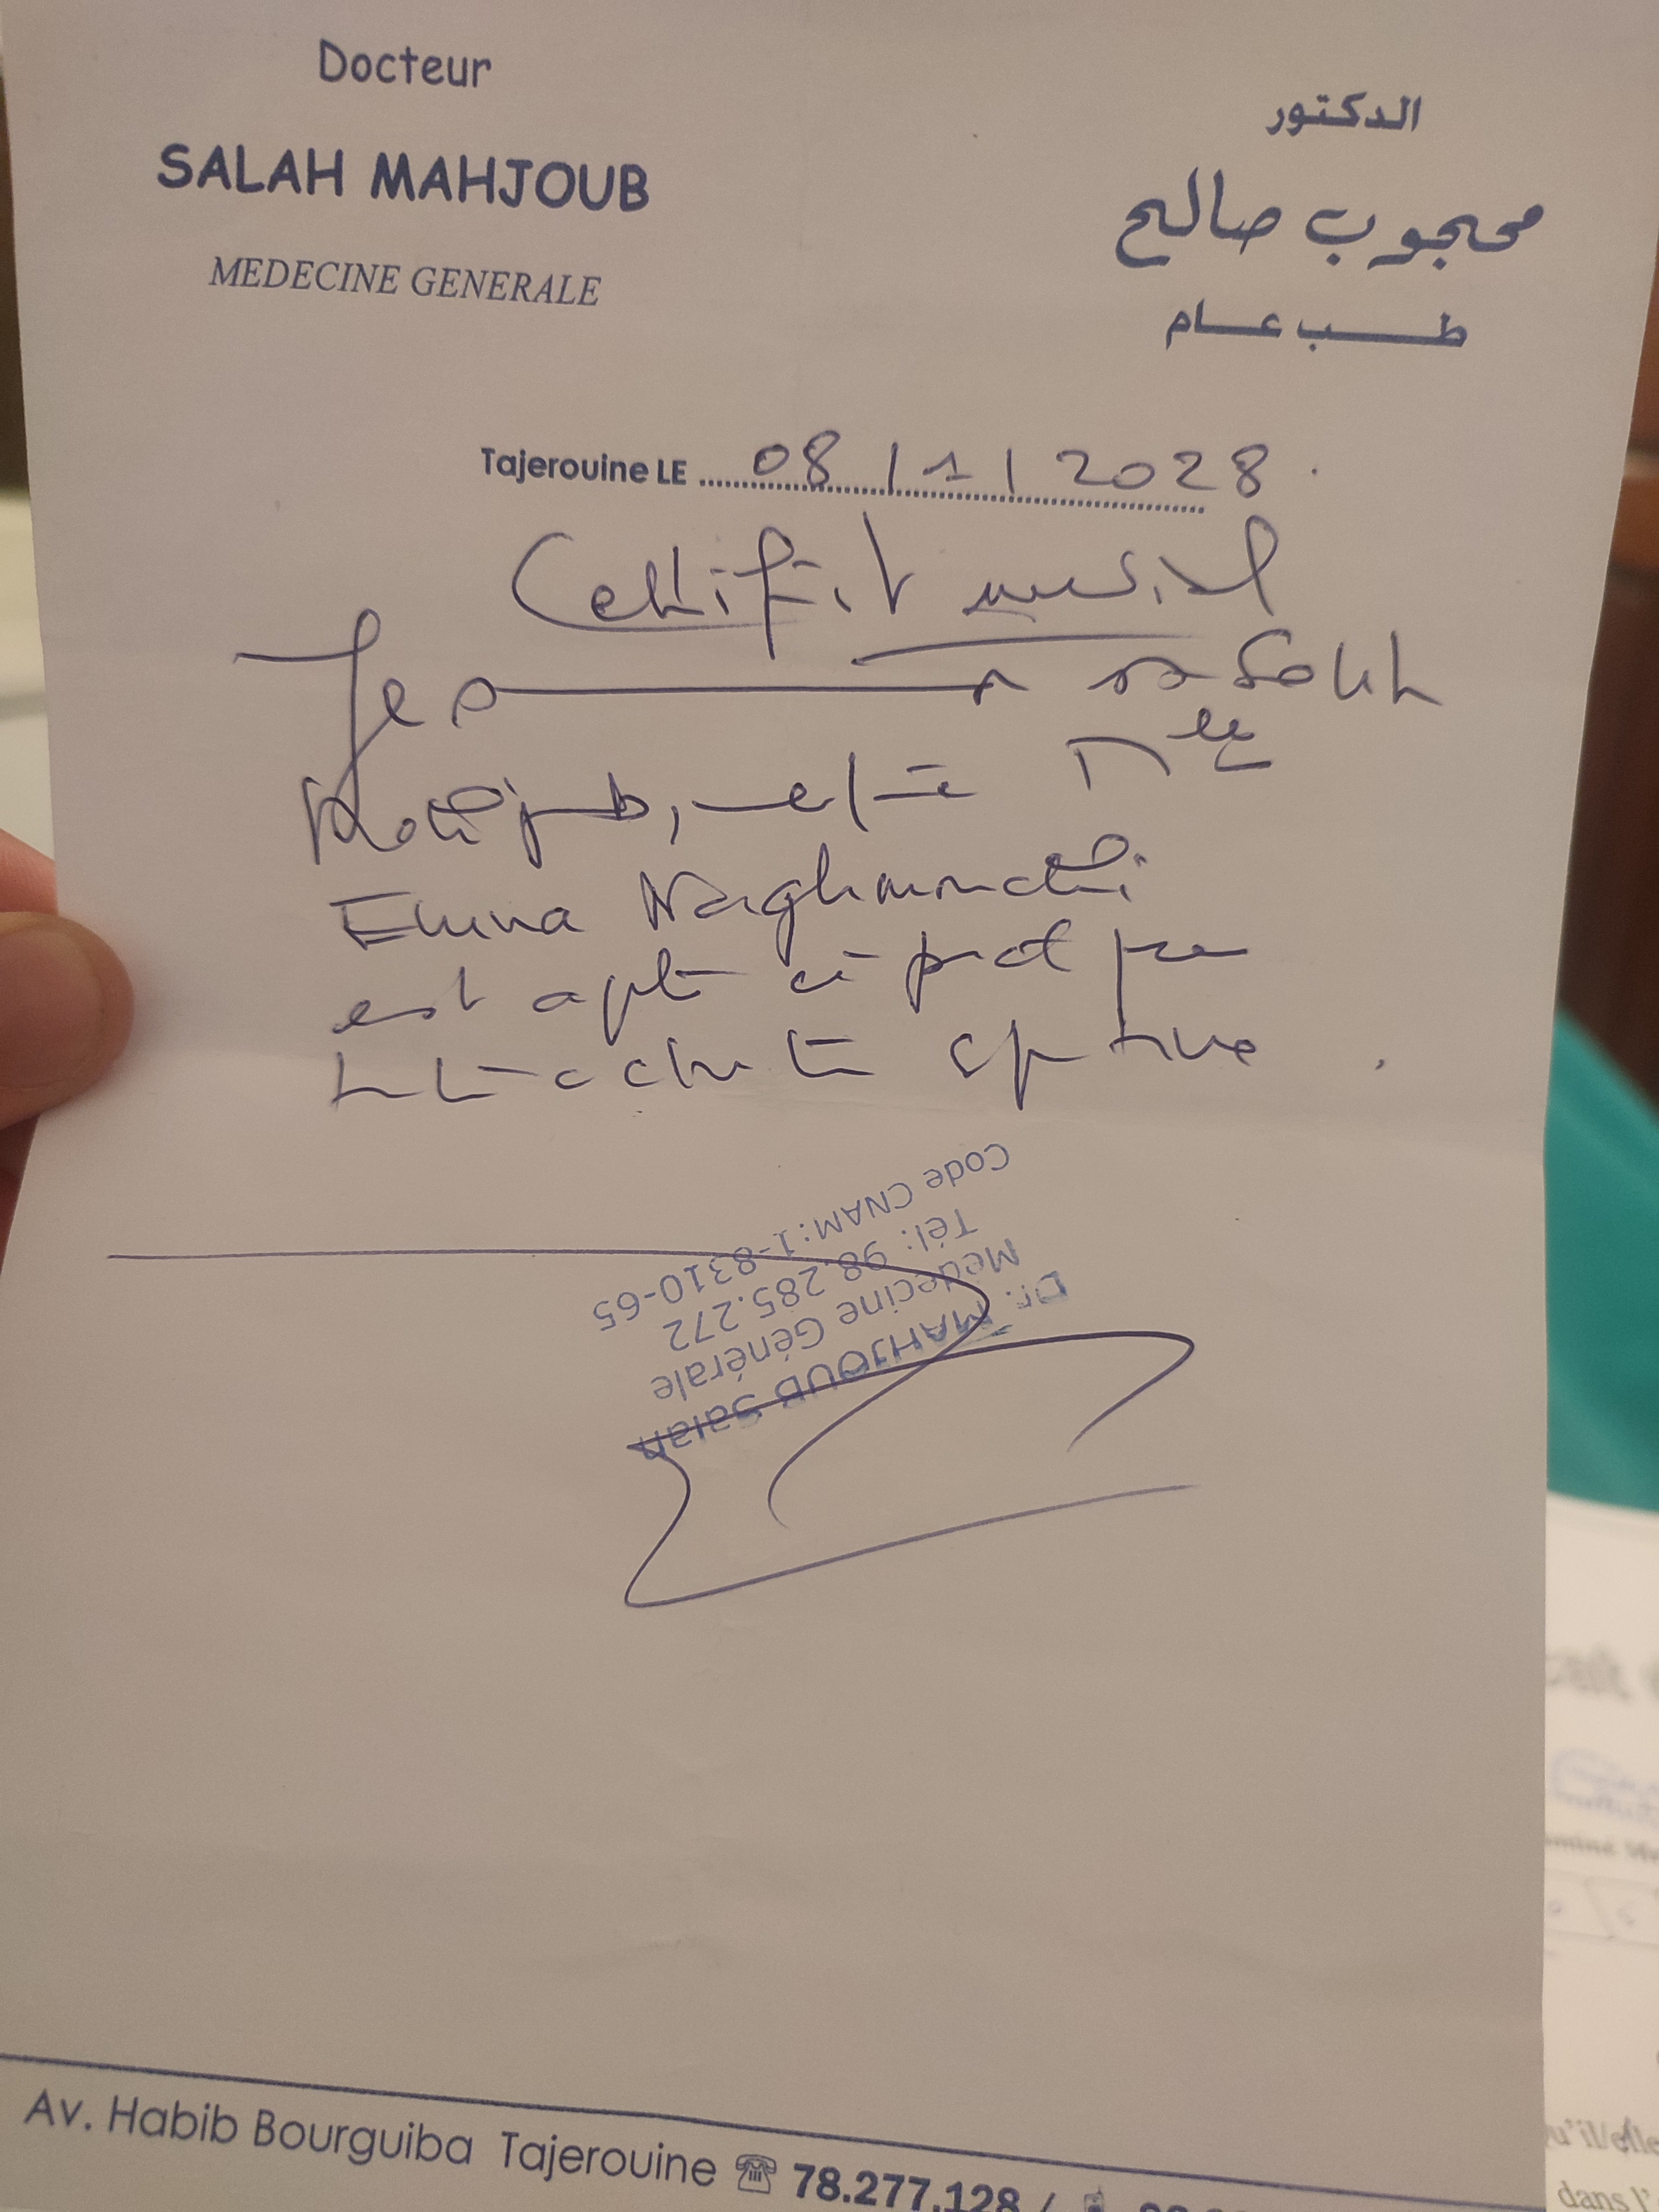 Docteur
SALAH MAHJOUB
MEDECINE GENERALE
الدكتور
محجوب صالح
طب عام
Tajerouine LE 08/1/2028
Certificat médical
Je Salah
Mahjoub, atteste Mlle
Emna Naghmouchi
est apte à pour
toute activité sportive.
Dr. MAHJOUB Salah
Médecine Générale
Tél: 98.285.272
Code CNAM: 1-8310-65
Av. Habib Bourguiba Tajerouine ☏ 78.277.128 /
qu'il/elle
dans l'